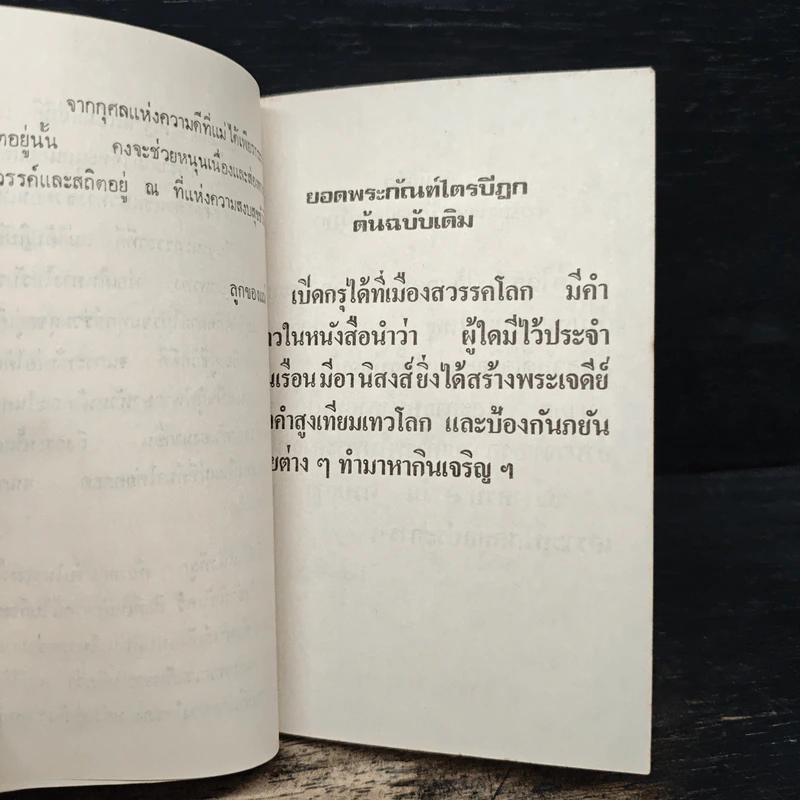 จากกุศลแห่งความดีที่แม่ได้เพียร
อยู่นั้น คงจะช่วยหนุนเนื่องและ
วรรค์และสถิตอยู่ ณ ที่แห่งความสงบสุข
ลูกของ
ยอดพระกัณฑ์ไตรปีฎก
ต้นฉบับเดิม
เปิดกรุได้ที่เมืองสวรรคโลก มีคำ
ในหนังสือนำว่า ผู้ใดมีไว้ประจำ
เรือนมีอานิสงส์ยิ่งได้สร้างพระเจดีย์
คำสูงเทียมเทวโลก และป้องกันภยัน
ต่าง ๆ ทำมาหากินเจริญ ฯ